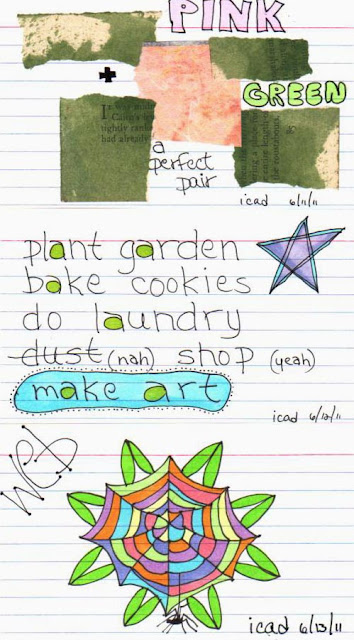 PINK
+
GREEN
a
perfect
pair
icad 6/11/11
plant garden
bake cookies
do laundry
dust (nah) shop (yeah)
make art
icad 6/12/11
web
icad 6/13/11